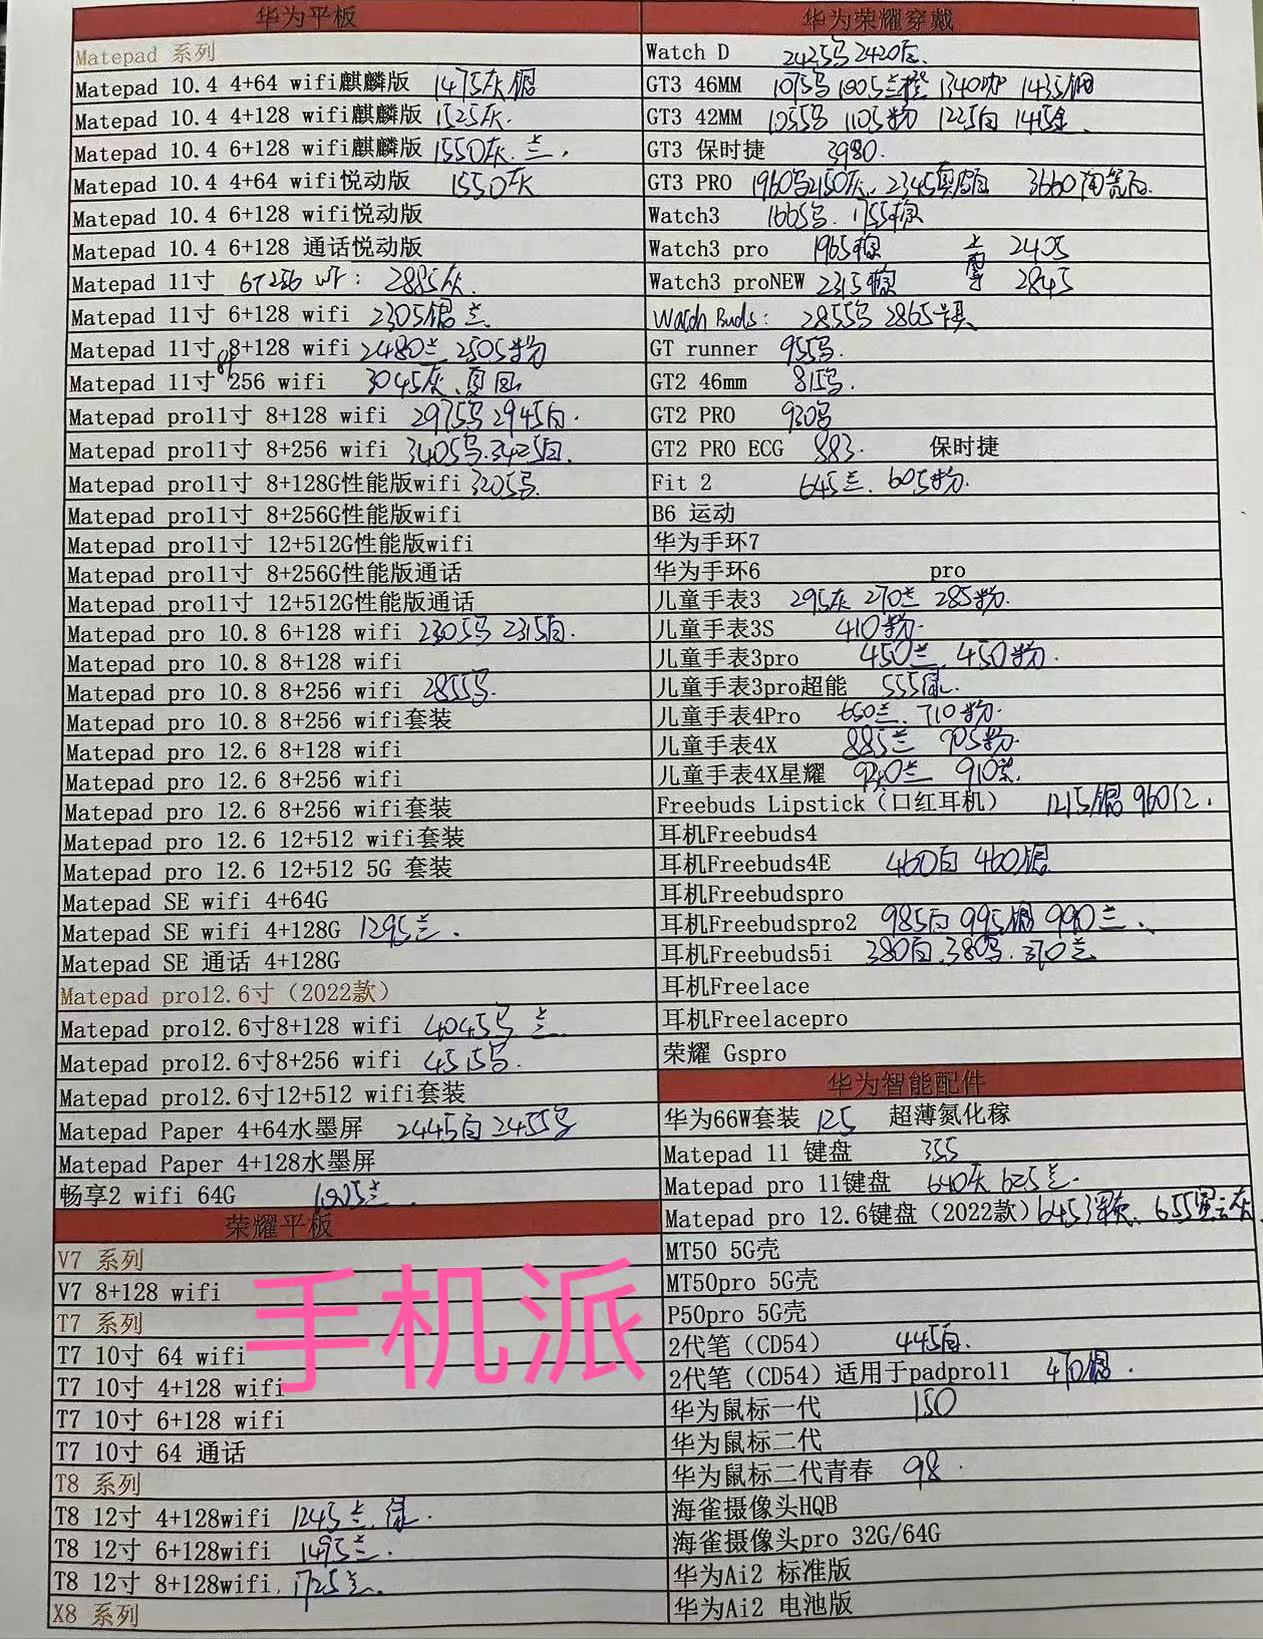 华为平板
Matepad 系列
Matepad 10.4 4+64 wifi麒麟版 1475灰银
Matepad 10.4 4+128 wifi麒麟版 1525灰.
Matepad 10.4 6+128 wifi麒麟版 1550灰.兰.
Matepad 10.4 4+64 wifi悦动版 1550灰
Matepad 10.4 6+128 wifi悦动版
Matepad 10.4 6+128 通话悦动版
Matepad 11寸 2885灰.
Matepad 11寸 6+128 wifi 2305银兰.
Matepad 11寸 8+128 wifi 2480兰 2505粉
Matepad 11寸 256 wifi 3045灰、
Matepad pro11寸 8+128 wifi 2975 2945白.
Matepad pro11寸 8+256 wifi 3405 3425白.
Matepad pro11寸 8+128G性能版wifi 3205
Matepad pro11寸 8+256G性能版wifi
Matepad pro11寸 12+512G性能版wifi
Matepad pro11寸 8+256G性能版通话
Matepad pro11寸 12+512G性能版通话
Matepad pro 10.8 6+128 wifi 2305 2315白.
Matepad pro 10.8 8+128 wifi
Matepad pro 10.8 8+256 wifi 2855
Matepad pro 10.8 8+256 wifi套装
Matepad pro 12.6 8+128 wifi
Matepad pro 12.6 8+256 wifi
Matepad pro 12.6 8+256 wifi套装
Matepad pro 12.6 12+512 wifi套装
Matepad pro 12.6 12+512 5G 套装
Matepad SE wifi 4+64G
Matepad SE wifi 4+128G 1295兰.
Matepad SE 通话 4+128G
Matepad pro12.6寸（2022款）
Matepad pro12.6寸8+128 wifi 4045 兰
Matepad pro12.6寸8+256 wifi 4515
Matepad pro12.6寸12+512 wifi套装
Matepad Paper 4+64水墨屏 2445白 2455
Matepad Paper 4+128水墨屏
畅享2 wifi 64G
荣耀平板
V7 系列
V7 8+128 wifi
T7 系列
T7 10寸 64 wifi
T7 10寸 4+128 wifi
T7 10寸 6+128 wifi
T7 10寸 64 通话
T8 系列
T8 12寸 4+128wifi 1245兰.绿.
T8 12寸 6+128wifi 1495兰.
T8 12寸 8+128wifi 1725兰.
X8 系列
手机派
华为荣耀穿戴
Watch D 2425 2420
GT3 46MM 1075 1340咖 1435钢
GT3 42MM 1055 1105粉 1225白 1415金
GT3 保时捷 3980.
GT3 PRO 1960 2150灰. 2345 3660
Watch3 1665 1755棕
Watch3 pro 1965棕 2405
Watch3 proNEW 2315棕 2845
Watch Buds: 2855 2865
GT runner 955
GT2 46mm 815
GT2 PRO 930
GT2 PRO ECG 883. 保时捷
Fit 2 645兰. 605粉.
B6 运动
华为手环7
华为手环6 pro
儿童手表3 295灰 270兰 285粉.
儿童手表3S 410粉.
儿童手表3pro 450兰 450粉.
儿童手表3pro超能 555绿.
儿童手表4Pro 710粉.
儿童手表4X 885兰 905粉.
儿童手表4X星耀 910
Freebuds Lipstick（口红耳机） 1215银 960红.
耳机Freebuds4
耳机Freebuds4E 460白 460银
耳机Freebudspro
耳机Freebudspro2 985白 995银 990兰
耳机Freebuds5i 380白 380 370兰
耳机Freelace
耳机Freelacepro
荣耀 Gspro
华为智能配件
华为66W套装 125 超薄氮化稼
Matepad 11 键盘 355
Matepad pro 11键盘 640灰 625兰.
Matepad pro 12.6键盘（2022款）645深灰、655
MT50 5G壳
MT50pro 5G壳
P50pro 5G壳
2代笔（CD54） 445白.
2代笔（CD54）适用于padpro11 470银.
华为鼠标一代 150
华为鼠标二代
华为鼠标二代青春 98.
海雀摄像头HQB
海雀摄像头pro 32G/64G
华为Ai2 标准版
华为Ai2 电池版